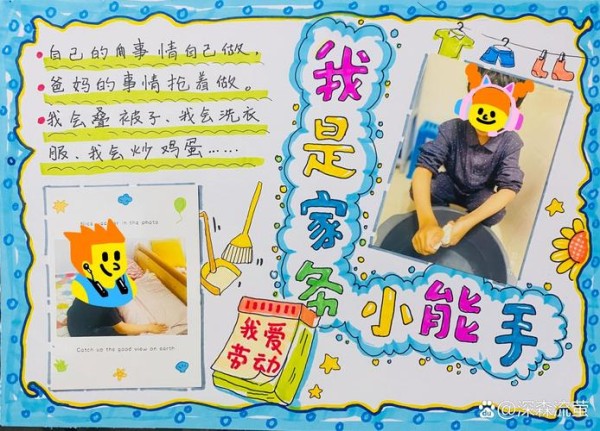 自己的角事情自己做,
爸妈的事情抢着做。
我会叠被子、我会洗衣
服、我会炒鸡蛋……
我是家务小能手
in the photo
Catch up the good view on earth.
我爱
劳动
@深森流萤